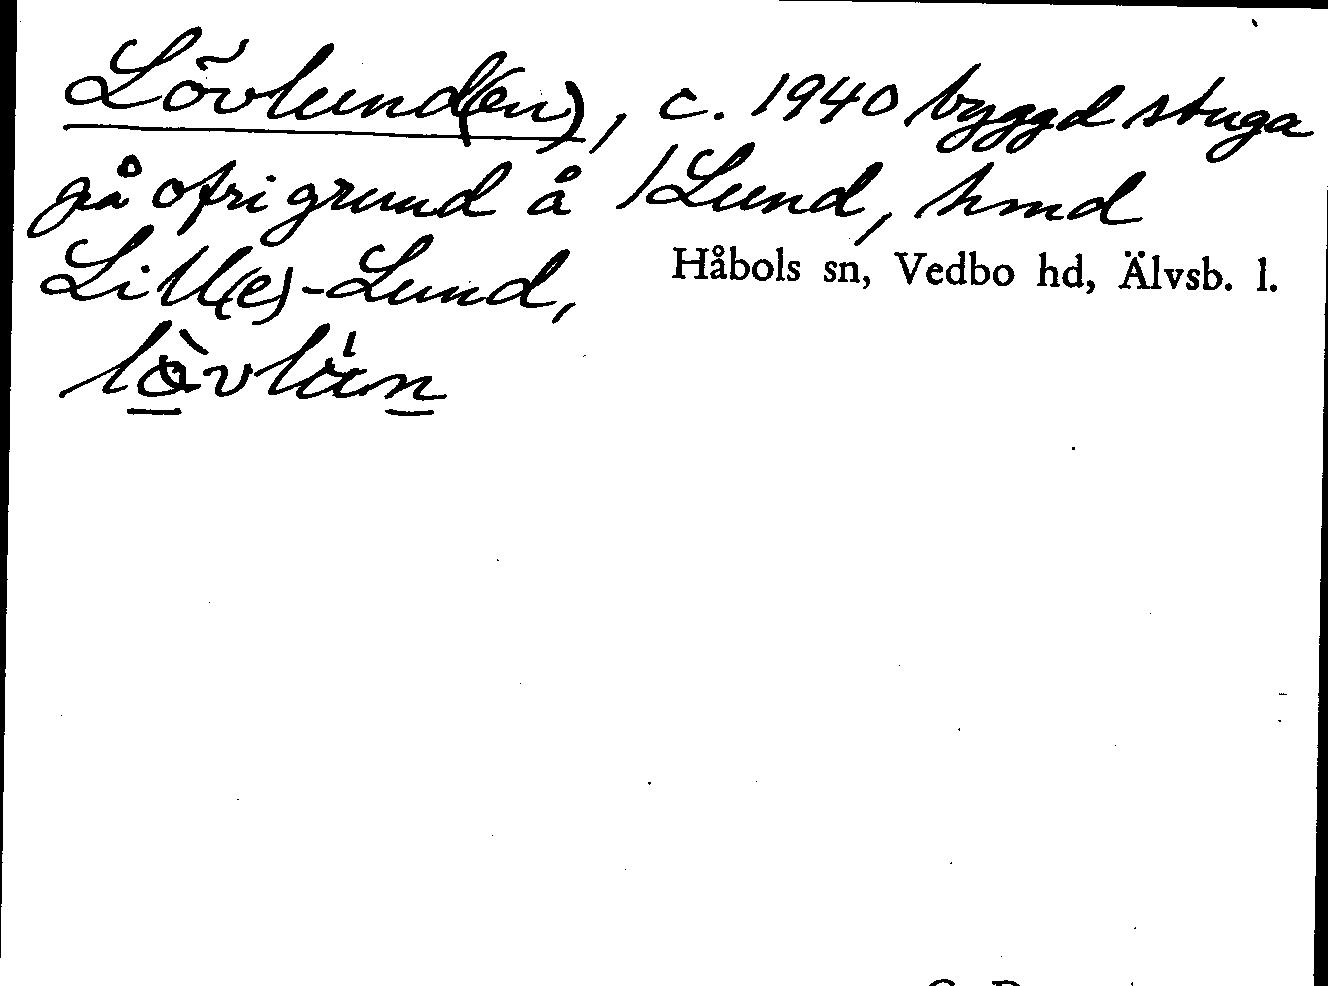 Lövlund(en), c. 1940 byggd stuga
på ofri grund å 1Lund, hmd
Lill(e)-Lund,
Håbols sn, Vedbo hd, Älvsb. l.